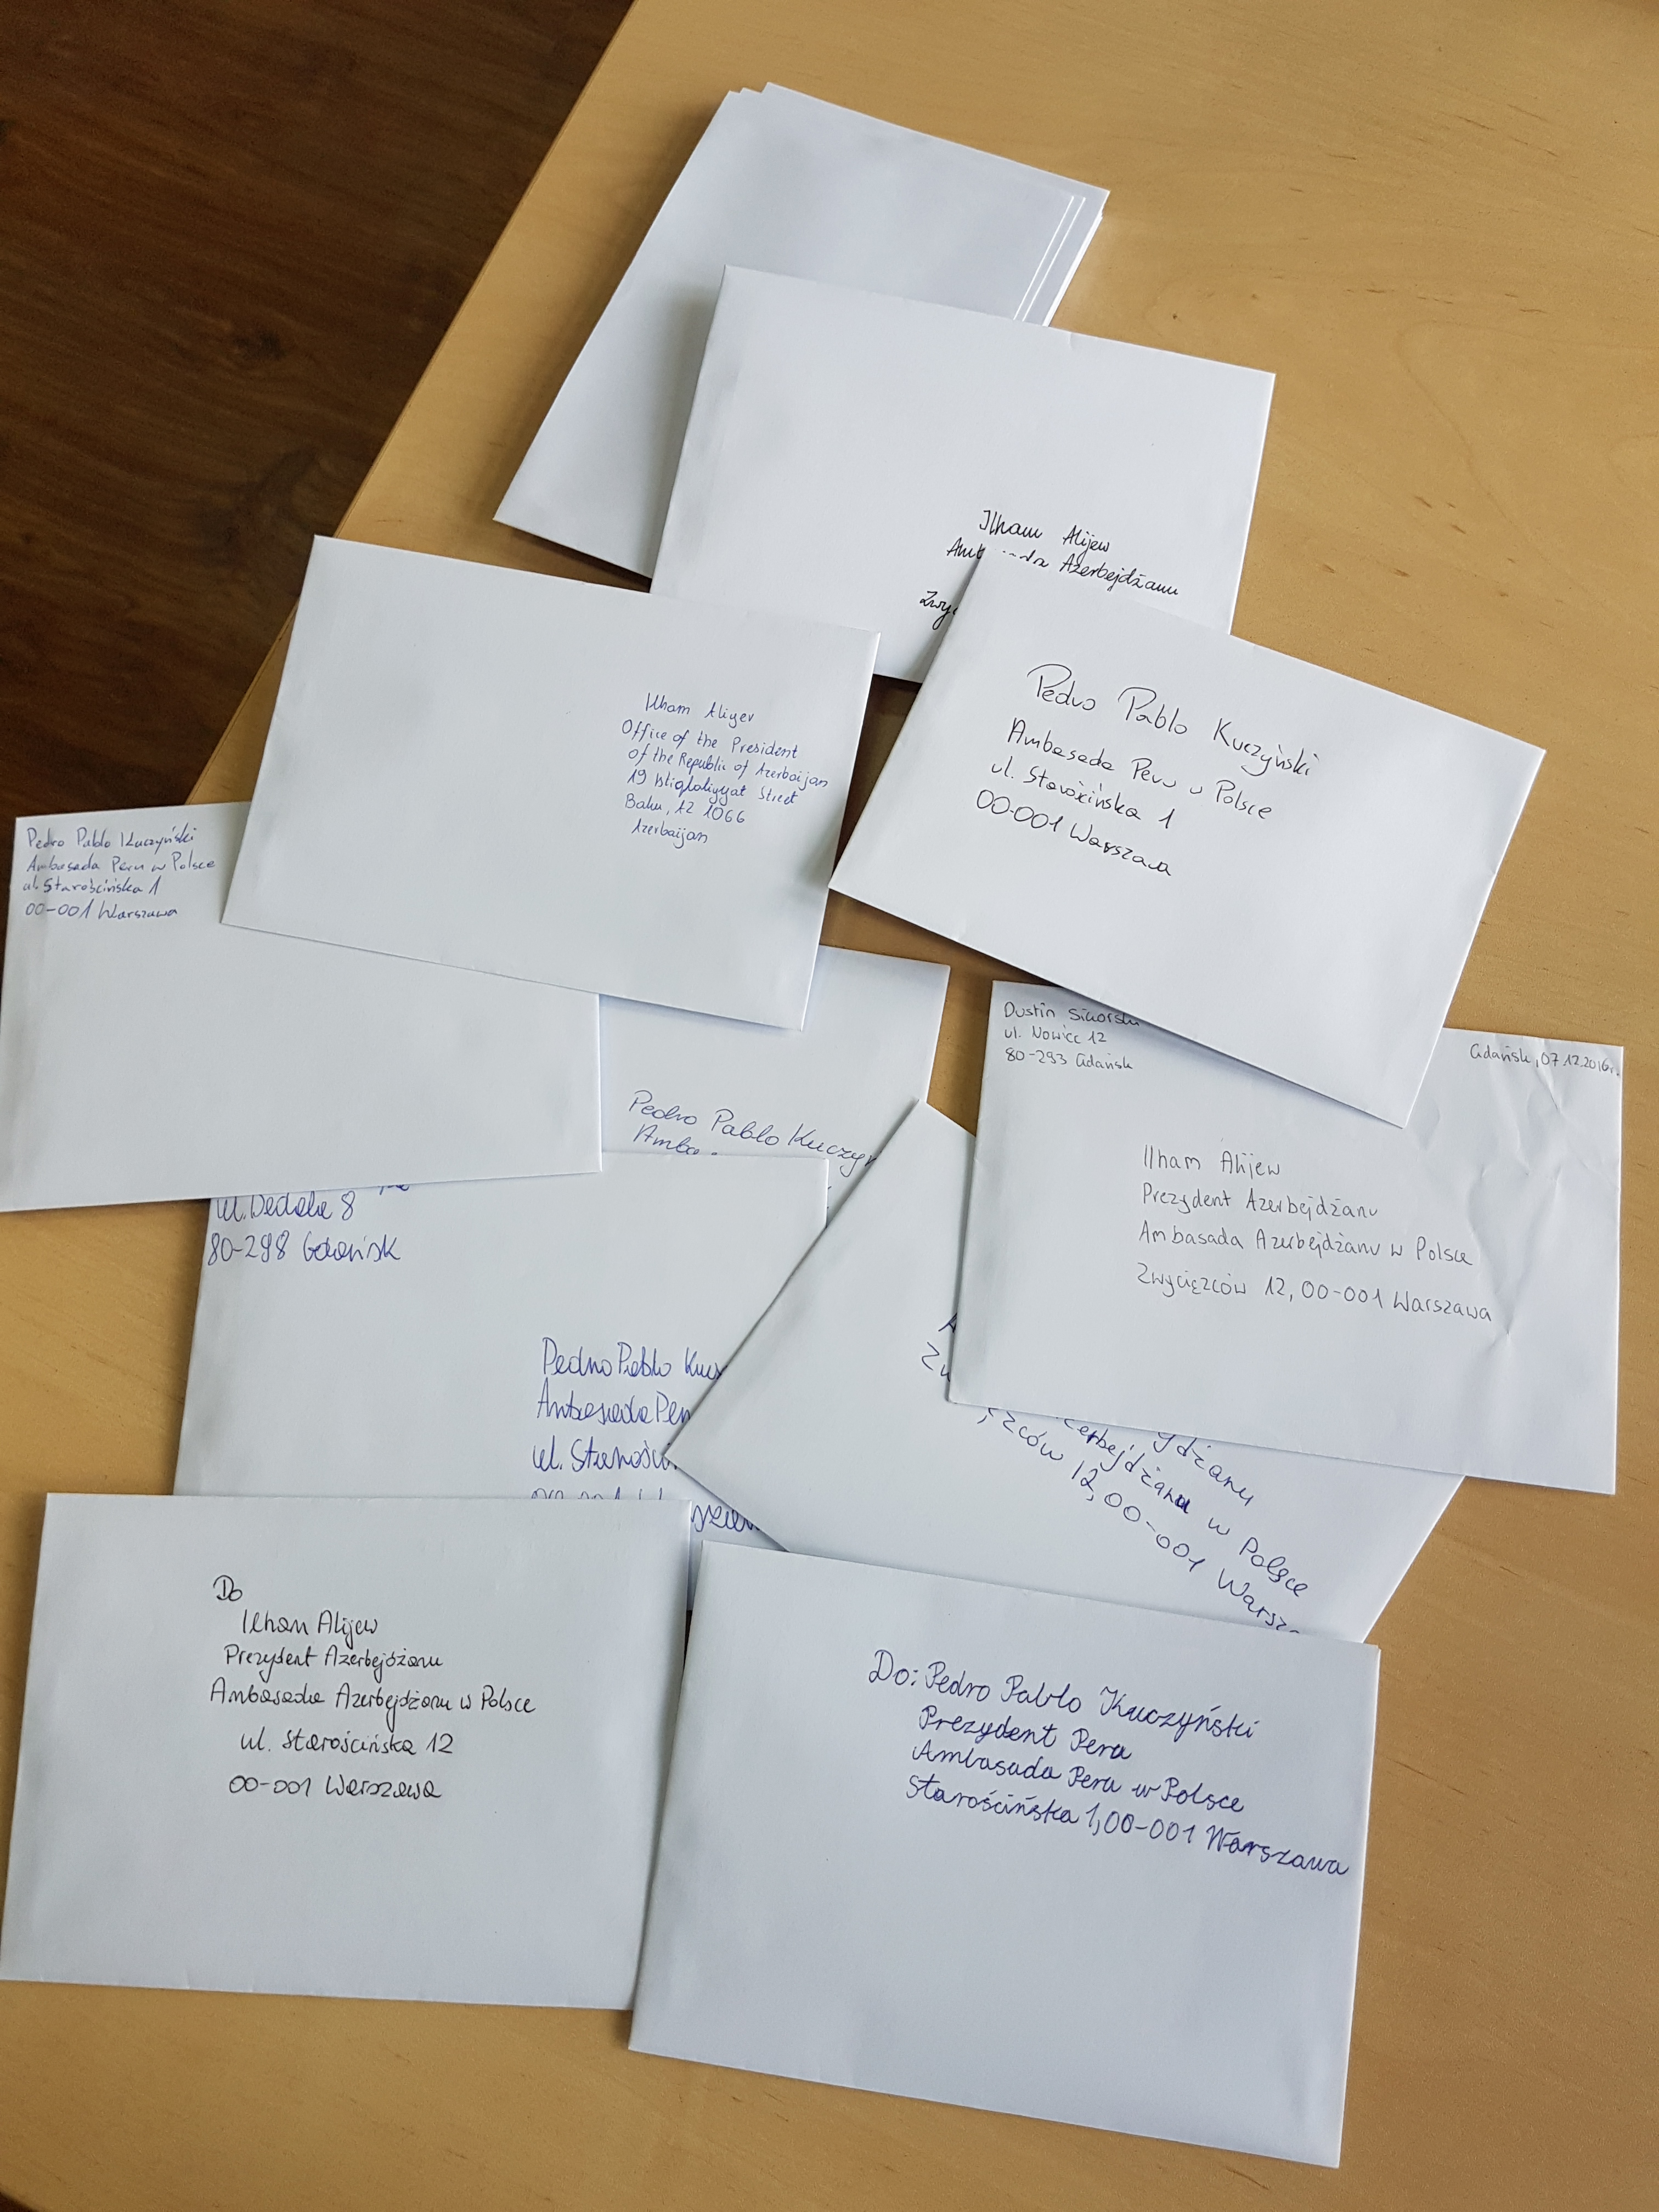 Ilham Alijew
Azerbejdżanu
Ilham Aliyev
Office of the President
of the Republic of Azerbaijan
19 Istiqlaliyyat Street
Baku, AZ 1066
Azerbaijan
Pedro Pablo Kuczyński
Ambasada Peru w Polsce
ul. Starościńska 1
00-001 Warszawa
Pedro Pablo Kuczyński
Ambasada Peru w Polsce
ul. Starościńska 1
00-001 Warszawa
Dustin Sikorski
ul. Nowicc 12
80-293 Gdańsk
Gdańsk, 07.12.2016r.
Ilham Alijew
Prezydent Azerbejdżanu
Ambasada Azerbejdżanu w Polsce
Zwycięzców 12, 00-001 Warszawa
Pedro Pablo Kuczyń
Amba
ul. Dedala 8
80-298 Gdańsk
Pedro Pablo Kucz
Ambasada Peru
ul. Starości
ydżanu
zerbejdżana w Polsce
zców 12, 00-001 Warsz
Do
Ilham Alijew
Prezydent Azerbejdżanu
Ambasada Azerbejdżanu w Polsce
ul. Starościńska 12
00-001 Warszawa
Do: Pedro Pablo Kuczyński
Prezydent Peru
Ambasada Peru w Polsce
Starościńska 1, 00-001 Warszawa